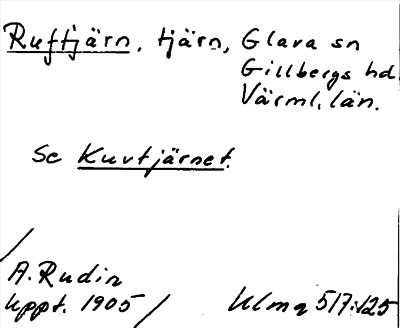 Ruftjärn, tjärn, Glava sn
Gillbergs hd
Värml. län.
Se Kuvtjärnet.
A. Rudin
Uppt. 1905
Ulma 517:125